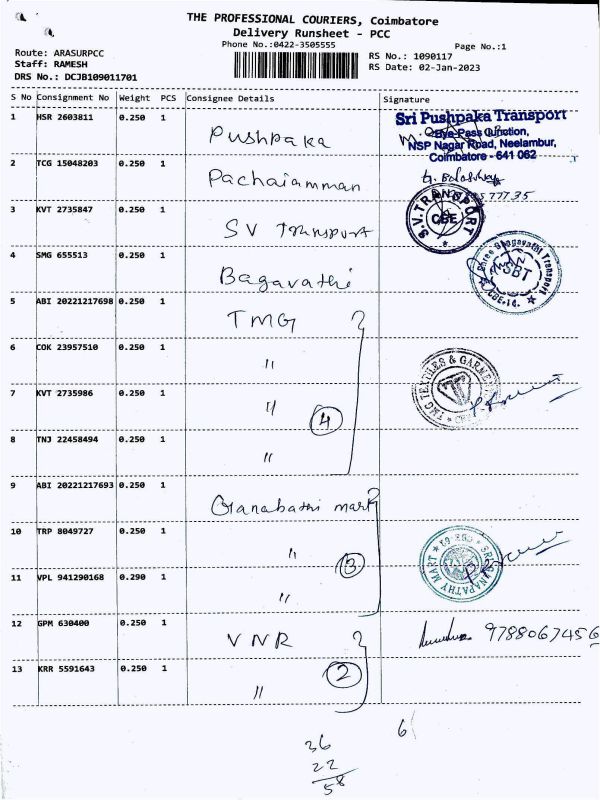 THE PROFESSIONAL COURIERS, Coimbatore
Delivery Runsheet - PCC
Phone No.:0422-3505555
Page No.:1
Route: ARASURPCC
Staff: RAMESH
DRS No.: DCJB109011701
RS No.: 1090117
RS Date: 02-Jan-2023
S No Consignment No Weight PCS Consignee Details Signature
1 HSR 2603811 0.250 1 Pushpaka
Sri Pushpaka Transport
Bye-Pass Junction,
NSP Nagar Road, Neelambur,
Coimbatore - 641 062
2 TCG 15048203 0.250 1 Pachaiamman
3 KVT 2735847 0.250 1 SV Transport
S.V.TRANSPORT
CBE
4 SMG 655513 0.250 1 Bagavathi
Shree Bhagavathi Transport
SBT
CBE-14.
5 ABI 20221217698 0.250 1 TMG
6 COK 23957510 0.250 1 "
TMG TEXTILES & GARMEN
7 KVT 2735986 0.250 1 "
4
8 TNJ 22458494 0.250 1 "
9 ABI 20221217693 0.250 1 Ganabathi mart
10 TRP 8049727 0.250 1 "
3
SRI GANAPATHY MART
11 VPL 941290168 0.290 1 "
12 GPM 630400 0.250 1 VNR
9788067456
13 KRR 5591643 0.250 1 "
2
6
36
22
58